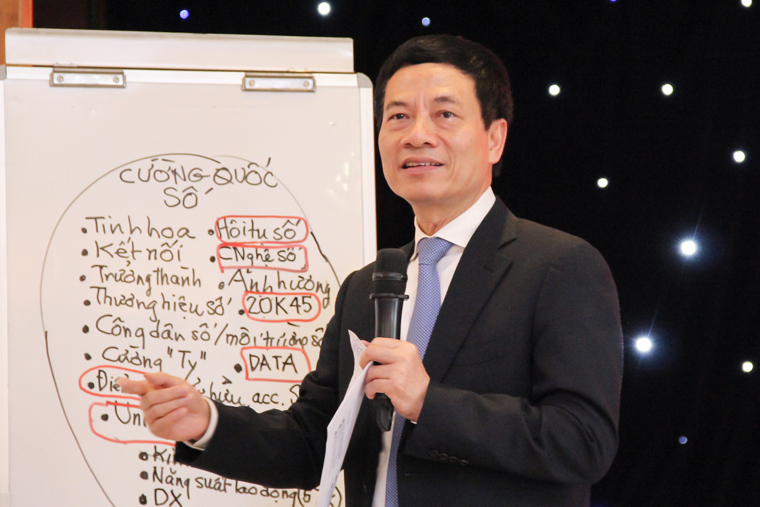 CƯỜNG QUỐC
SỐ
• Tinh hoa • Hội tụ số
• Kết nối • CNghệ số
• Trưởng thành • Ảnh hưởng
• Thương hiệu số • 20K45
• Công dân số / môi trường số
• Cường "Ty" • DATA
acc.
• Năng suất lao động
• DX